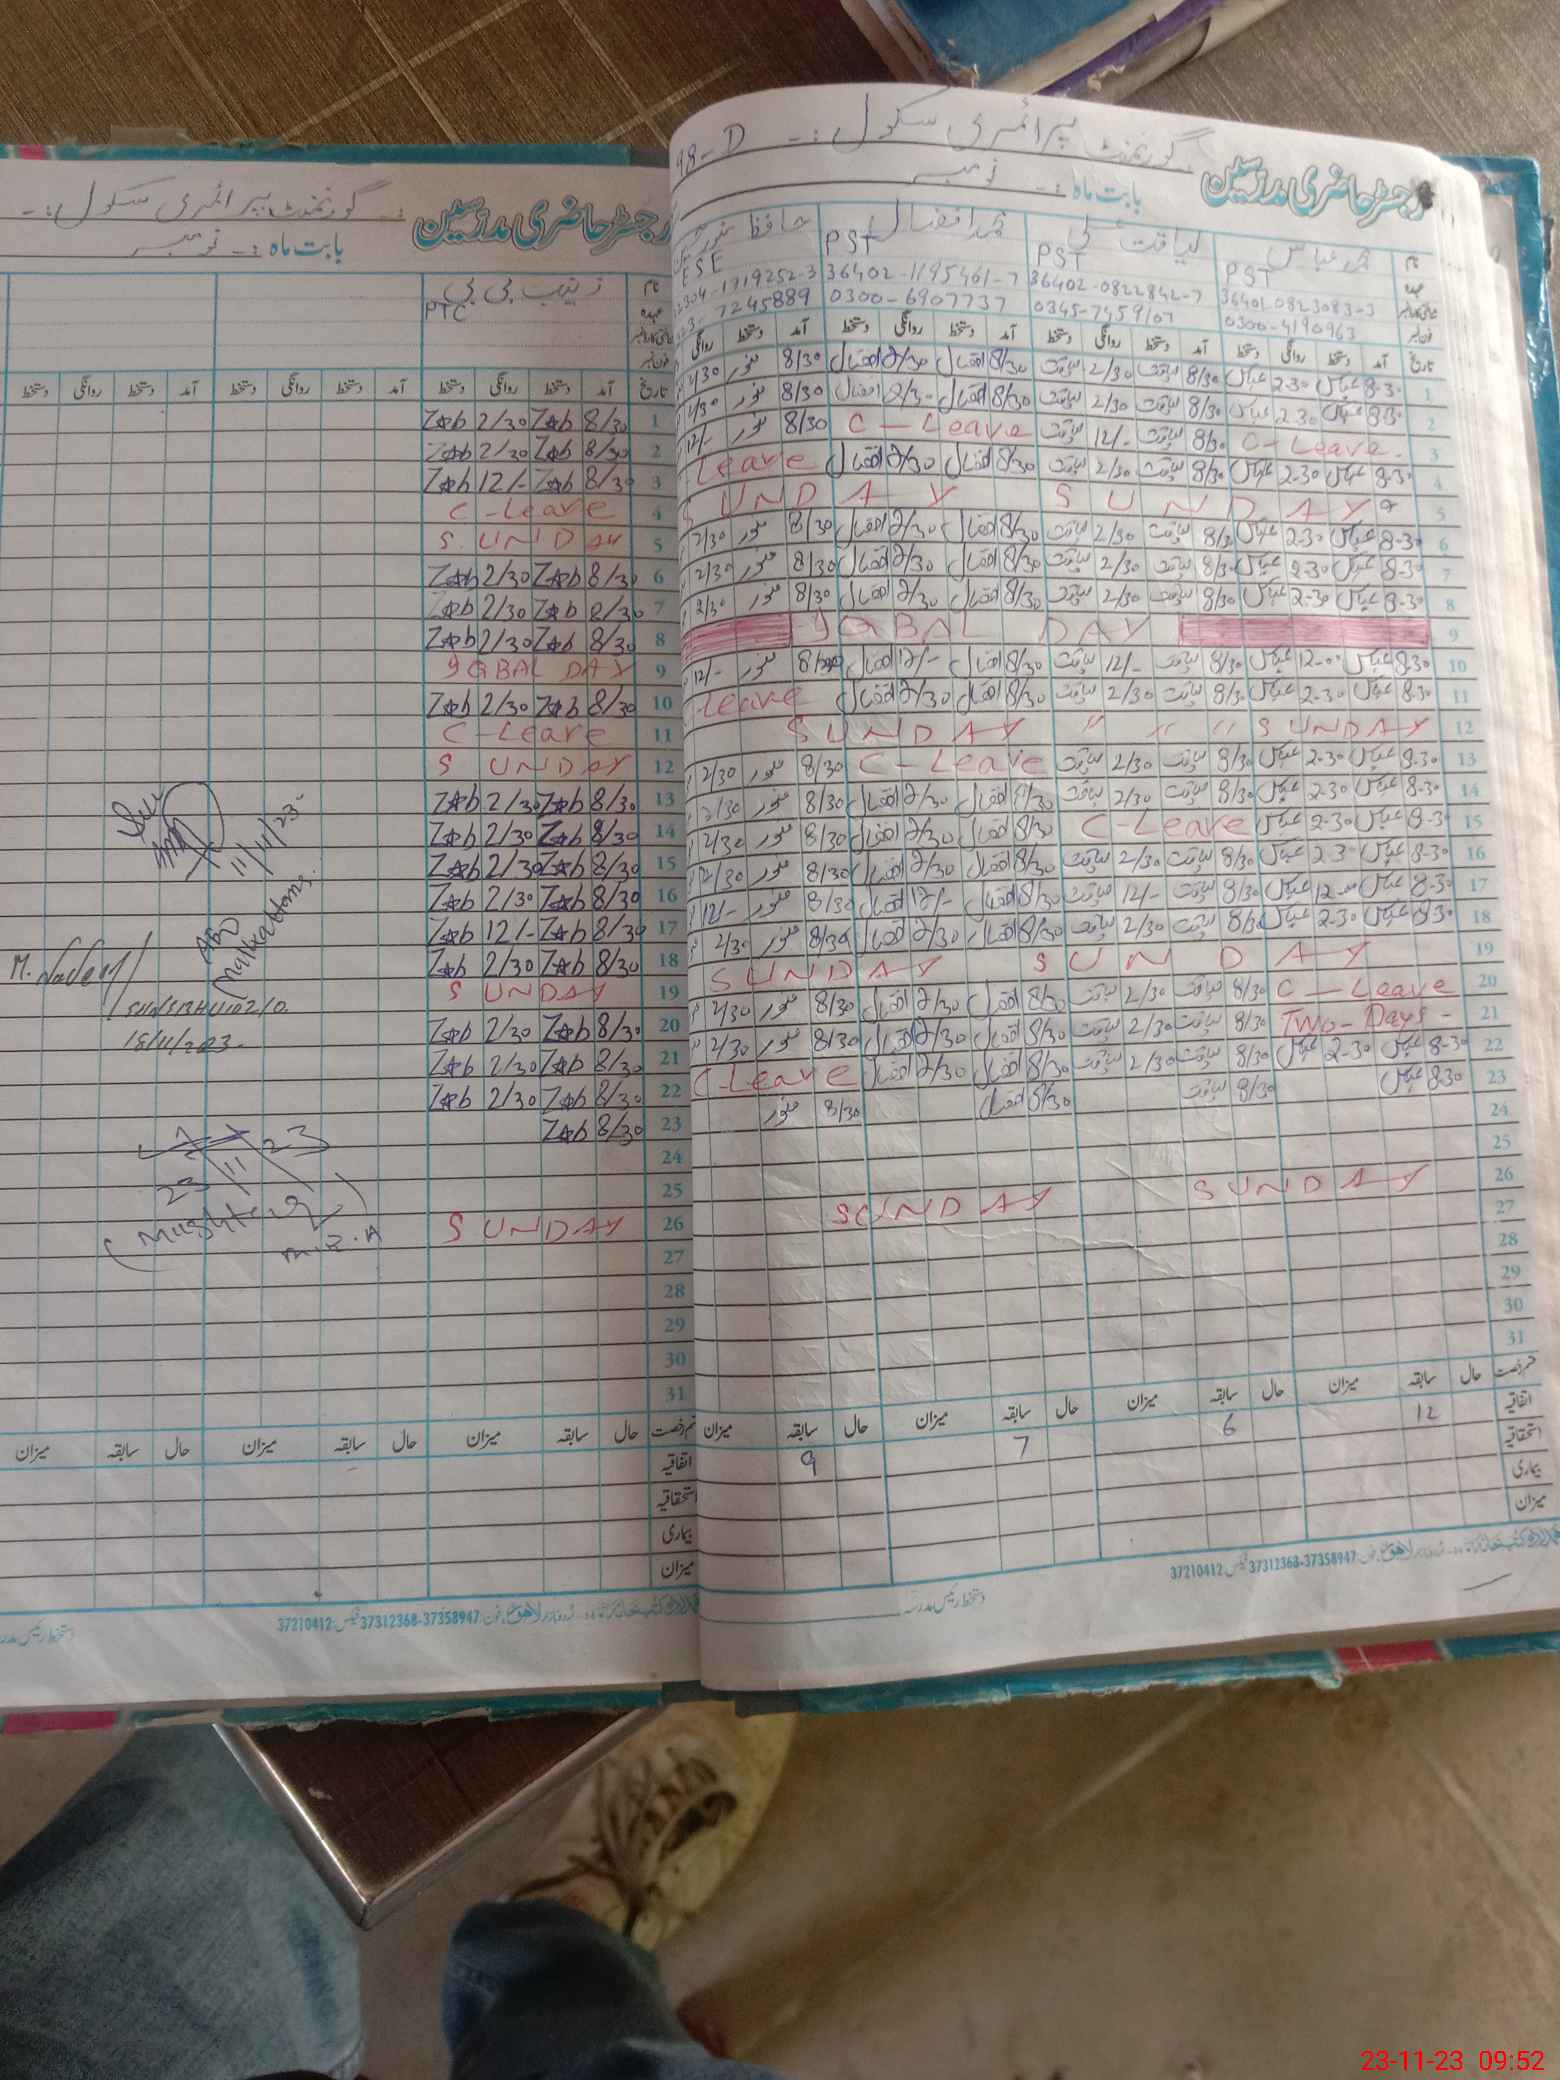 رجسٹر حاضری مدرسین گورنمنٹ پرائمری سکول :-
98-D
بابت ماہ :- نومبر
نام محمد عباس لیاقت علی محمد افضال حافظ
عہدہ PST PST PST ESE
36401-0823083-3 36402-0822842-7 36402-1195461-7 304-1719252-3
فون نمبر 0300-4190963 0345-7459107 0300-6907737 7245889
تاریخ آمد دستخط روانگی دستخط آمد دستخط روانگی دستخط آمد دستخط روانگی دستخط آمد دستخط روانگی
1 8-30 عباس 2-30 عباس 8/30 لیاقت 2/30 لیاقت 8/30 افضال 2/30 افضال 8/30 منور 2/30
2 8-30 عباس 2-30 عباس 8/30 لیاقت 2/30 لیاقت 8/30 افضال 2/30 افضال 8/30 منور 2/30
3 C-Leave. 8/30 لیاقت 12/- لیاقت C-Leave 8/30 منور 12/-
4 8-30 عباس 2-30 عباس 8/30 لیاقت 2/30 لیاقت 8/30 افضال 2/30 افضال Leave
5 SUNDAY SUNDAY
6 8-30 عباس 2-30 عباس 8/30 لیاقت 2/30 لیاقت 8/30 افضال 2/30 افضال 8/30 منور 2/30
7 8-30 عباس 2-30 عباس 8/30 لیاقت 2/30 لیاقت 8/30 افضال 2/30 افضال 8/30 منور 2/30
8 8-30 عباس 2-30 عباس 8/30 لیاقت 2/30 لیاقت 8/30 افضال 2/30 افضال 8/30 منور 2/30
9 IQBAL DAY
10 8-30 عباس 12-00 عباس 8/30 لیاقت 12/- لیاقت 8/30 افضال 12/- افضال 8/30 منور 12/-
11 8-30 عباس 2-30 عباس 8/30 لیاقت 2/30 لیاقت 8/30 افضال 2/30 افضال Leave
12 SUNDAY " " " SUNDAY
13 8-30 عباس 2-30 عباس 8/30 لیاقت 2/30 لیاقت C-Leave 8/30 منور 2/30
14 8-30 عباس 2-30 عباس 8/30 لیاقت 2/30 لیاقت 8/30 افضال 2/30 افضال 8/30 منور 2/30
15 8-30 عباس 2-30 عباس C-Leave 8/30 افضال 2/30 افضال 8/30 منور 2/30
16 8-30 عباس 2-30 عباس 8/30 لیاقت 2/30 لیاقت 8/30 افضال 2/30 افضال 8/30 منور 2/30
17 8-30 عباس 12-00 عباس 8/30 لیاقت 12/- لیاقت 8/30 افضال 12/- افضال 8/30 منور 12/-
18 8-30 عباس 2-30 عباس 8/30 لیاقت 2/30 لیاقت 8/30 افضال 2/30 افضال 8/30 منور 2/30
19 SUNDAY SUNDAY
20 C-Leave 8/30 لیاقت 2/30 لیاقت 8/30 افضال 2/30 افضال 8/30 منور 2/30
21 Two-Days- 8/30 لیاقت 2/30 لیاقت 8/30 افضال 2/30 افضال 8/30 منور 2/30
22 8-30 عباس 2-30 عباس 8/30 لیاقت 2/30 لیاقت 8/30 افضال 2/30 افضال C-Leave
23 8-30 عباس 8/30 لیاقت 8/30 افضال 8/30 منور
24
25
26 SUNDAY SUNDAY
27
28
29
30
31
قسم رخصت حال سابقہ میزان حال سابقہ میزان حال سابقہ میزان حال سابقہ میزان
اتفاقیہ 12 6 7 9
استحقاقیہ
بیماری
میزان
37210412 فیکس: 37312368-37358947
دستخط رئیس مدرسہ
رجسٹر حاضری مدرسین گورنمنٹ پرائمری سکول :-
بابت ماہ :- نومبر
نام زینب بی بی
عہدہ PTC
فون نمبر
تاریخ آمد دستخط روانگی دستخط آمد دستخط روانگی دستخط آمد دستخط روانگی دستخط
1 8/30 Zab 2/30 Zab
2 8/30 Zab 2/30 Zab
3 8/30 Zab 12/- Zab
4 C-Leave
5 SUNDAY
6 8/30 Zab 2/30 Zab
7 8/30 Zab 2/30 Zab
8 8/30 Zab 2/30 Zab
9 IQBAL DAY
10 8/30 Zab 2/30 Zab
11 C-Leave
12 SUNDAY
13 8/30 Zab 2/30 Zab
14 8/30 Zab 2/30 Zab
15 8/30 Zab 2/30 Zab
16 8/30 Zab 2/30 Zab
17 8/30 Zab 12/- Zab
18 8/30 Zab 2/30 Zab
19 SUNDAY
20 8/30 Zab 2/30 Zab
21 8/30 Zab 2/30 Zab
22 8/30 Zab 2/30 Zab
23 8/30 Zab
24
25
26 SUNDAY
27
28
29
30
31
11/11/23
M. Nadeem
23
23/11
قسم رخصت حال سابقہ میزان حال سابقہ میزان حال سابقہ میزان
اتفاقیہ
استحقاقیہ
بیماری
میزان
37210412 فیکس: 37312368-37358947
دستخط رئیس مدرسہ
23-11-23 09:52